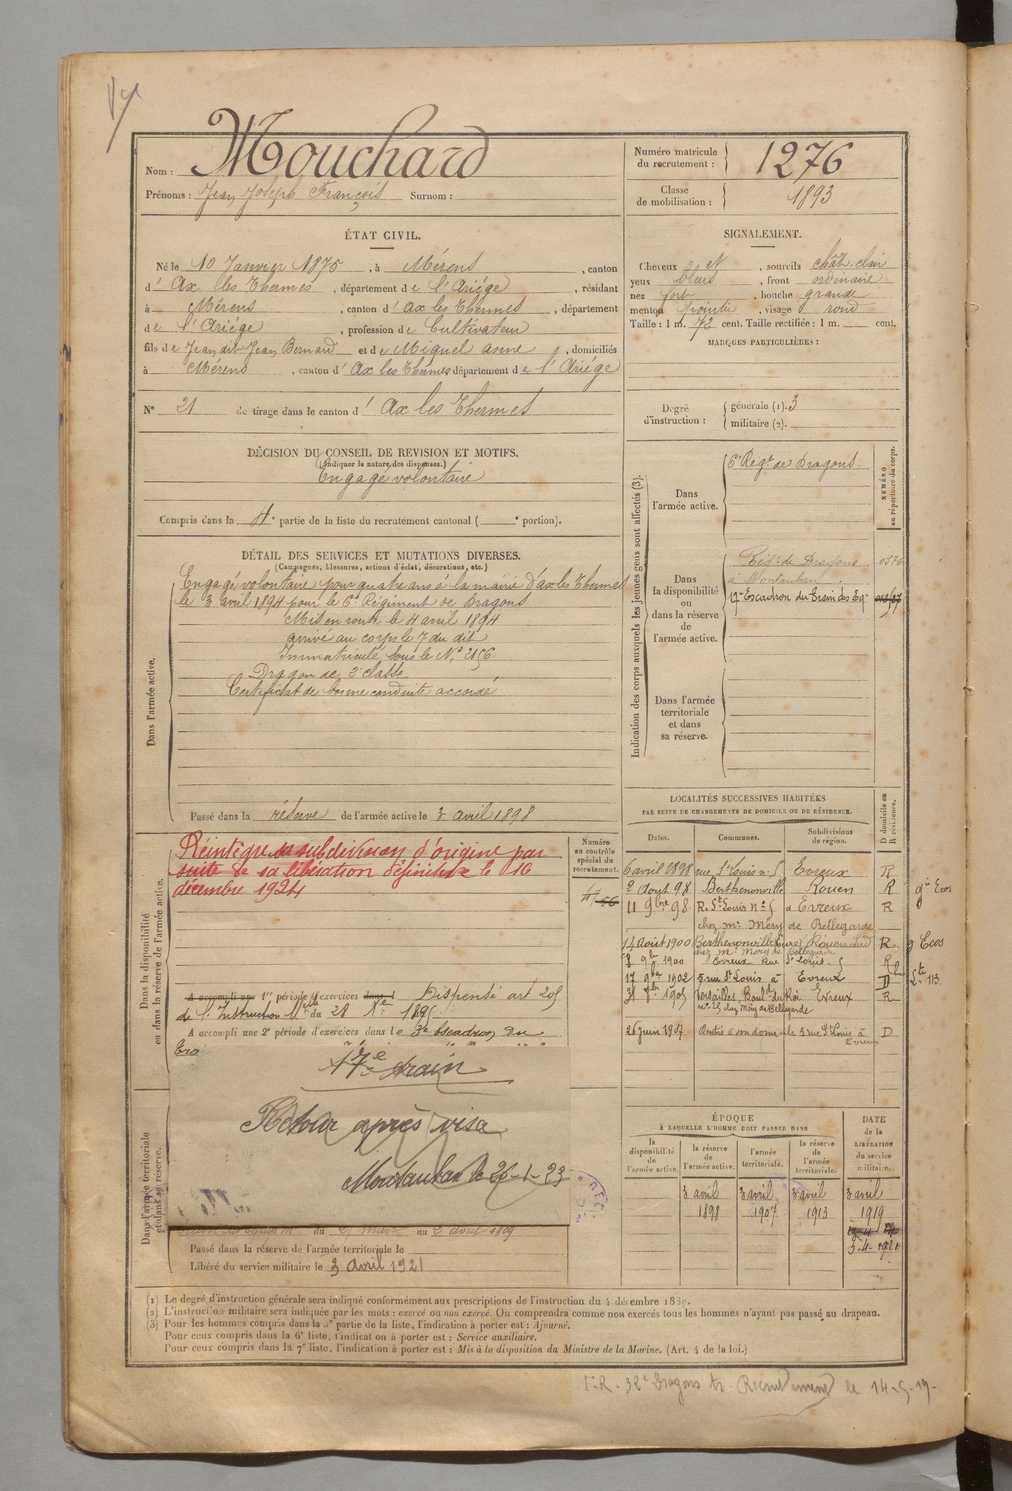 Nom : Mouchard
Prénoms : Jean Joseph François Surnom :
Numéro matricule du recrutement : 1276
Classe de mobilisation : 1893
ÉTAT CIVIL.
Né le 10 Janvier 1875, à Mérens, canton
d' Ax les Thermes, département de l'Ariège, résidant
à Mérens, canton d' Ax les Thermes, département
de l'Ariège, profession de Cultivateur
fils de Jean dit Jean Bernard et de Miquel anne, domiciliés
à Mérens, canton d' Ax les Thermes département de l'Ariège
N° 21 de tirage dans le canton d' Ax les Thermes
SIGNALEMENT.
Cheveux et, sourcils chât. clair
yeux bleus, front ordinaire
nez fort, bouche grande
menton pointu, visage rond
Taille : 1 m. 72 cent. Taille rectifiée : 1 m. cent.
MARQUES PARTICULIÈRES :
Degré d'instruction : générale (1). 3
militaire (2).
DÉCISION DU CONSEIL DE REVISION ET MOTIFS.
(Indiquer la nature des dispenses.)
Engagé volontaire
Compris dans la 4e partie de la liste du recrutement cantonal ( e portion).
DÉTAIL DES SERVICES ET MUTATIONS DIVERSES.
(Campagnes, blessures, actions d'éclat, décorations, etc.)
Dans l'armée active.
Engagé volontaire pour quatre ans à la mairie d'ax les Thermes
le 3 avril 1894 pour le 6e Régiment de Dragons
Mis en route le 4 avril 1894
arrivé au corps le 7 du dit
Immatriculé sous le N° 2156
Dragon de 2e classe
Certificat de bonne conduite accordé
Passé dans la réserve de l'armée active le 3 avril 1898
Indication des corps auxquels les jeunes gens sont affectés (3).
NUMÉRO au répertoire du corps.
Dans l'armée active.
6e Régt de Dragons
Dans la disponibilité ou dans la réserve de l'armée active.
Régt de Dragons
à Montauban
17e Escadron du Train des Eq.
Dans l'armée territoriale et dans sa réserve.
Dans la disponibilité ou dans la réserve de l'armée active.
Réintégré sa subdivision d'origine par
suite de sa libération définitive le 10
décembre 1924
Numéro au contrôle spécial du recrutement.
A accompli une 1re période d'exercices dans l Dispensé art 205
de l'Instruction du 28 Xe 1895
A accompli une 2e période d'exercices dans le 3e escadron du
Tra
17e train
Retour après visa
Montauban le 26-1-23
Dans l'armée territoriale et dans sa réserve.
du mars au 2 avril 1909
Passé dans la réserve de l'armée territoriale le
Libéré du service militaire le 3 avril 1921
LOCALITÉS SUCCESSIVES HABITÉES
PAR SUITE DE CHANGEMENTS DE DOMICILE OU DE RÉSIDENCE.
Dates. Communes. Subdivisions de région. D domicile ou R résidence.
6 avril 1898 rue St Louis n° 5 Evreux R
2 Aout 98 Berthenonville Rouen R gie Ecos
11 9bre 98 R. St Louis n° 5 à Evreux R
chez mr Méry de Bellegarde
14 Août 1900 Berthenonville (Eure) Rouen Sud R g Ecos
chez mr Méry de Bellegarde
8 9b 1900 Evreux Rue St Louis 5 R
17 9bre 1902 5 rue St Louis à Evreux D
31 1905 Versailles, Bould du Roi Evreux R
n° 25 chez Méry de Bellegarde
26 juin 1907 Rentré à son domicile 5 rue St Louis à Evreux D
ÉPOQUE
À LAQUELLE L'HOMME DOIT PASSER DANS
la disponibilité de l'armée active. la réserve de l'armée active. l'armée territoriale. la réserve de l'armée territoriale.
DATE de la LIBÉRATION du service militaire.
3 avril 3 avril 3 avril 3 avril
1898 1907 1913 1919
3-4-1921
(1) Le degré d'instruction générale sera indiqué conformément aux prescriptions de l'instruction du 4 décembre 1889.
(2) L'instruction militaire sera indiquée par les mots : exercé ou non exercé. On comprendra comme non exercés tous les hommes n'ayant pas passé au drapeau.
(3) Pour les hommes compris dans la 5e partie de la liste, l'indication à porter est : Ajourné.
Pour ceux compris dans la 6e liste, l'indication à porter est : Service auxiliaire.
Pour ceux compris dans la 7e liste, l'indication à porter est : Mis à la disposition du Ministre de la Marine. (Art. 4 de la loi.)
32e Dragons Recrutement le 14-5-19-